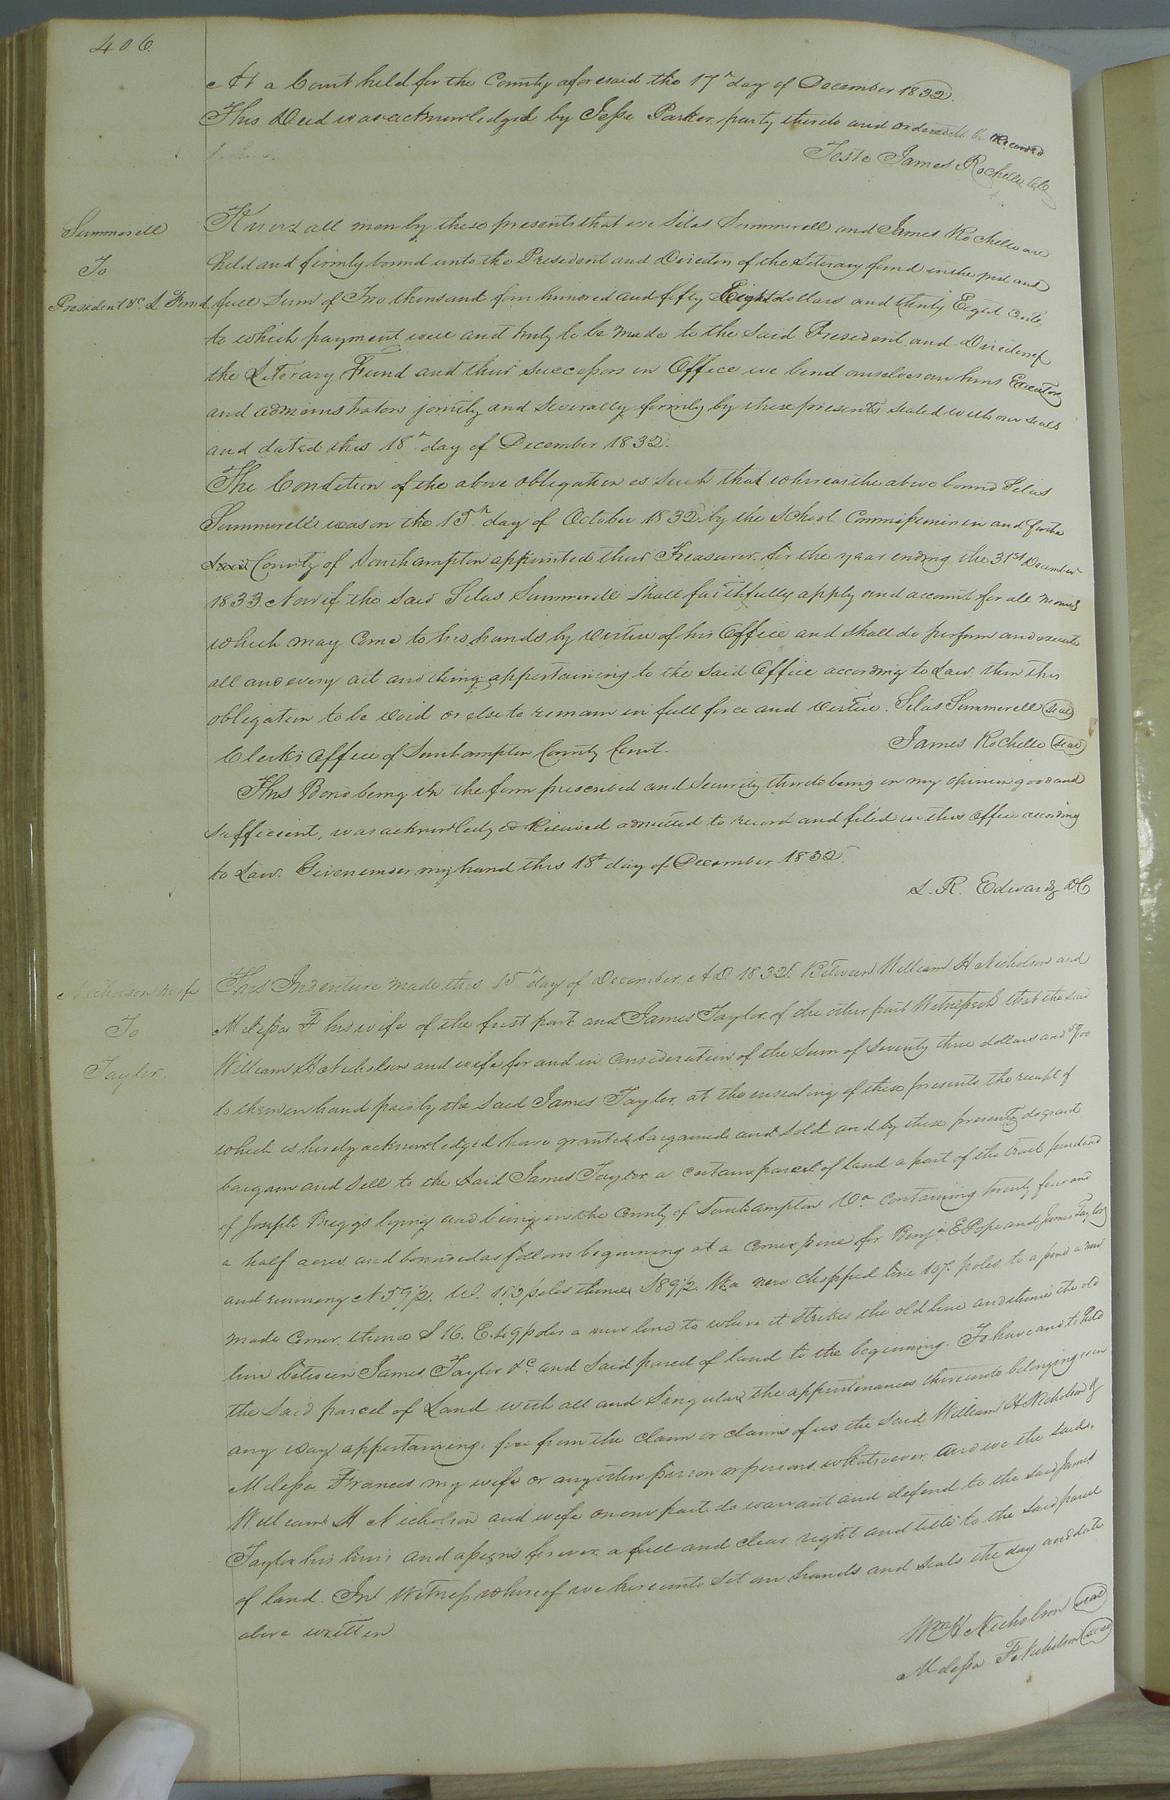 406
At a Court held for the County aforesaid the 17th day of December 1832.
This Deed was acknowledged by Jesse Parker party thereto and ordered to be Recorded
Teste James Rochelle CC
Summerell
To
President &c. L Fund
Know all men by these presents that we Silas Summerell and James Rochelle are
held and firmly bound unto the President and Directors of the Literary fund in the just and
full Sum of Two thousand four hundred and fifty Eight dollars and thirty Eight Cents
to which payment well and truly to be made to the Said President and Directors of
the Literary Fund and their successors in Office we bend ourselves our heirs Executors
and administrators jointly and Severally firmly by these presents sealed with our seals
and dated this 18th day of December 1832.
The Condition of the above obligation is Such that whereas the above bound Silas
Summerell was on the 15th day of October 1832 by the School Commissioners in and for the
County of Southampton appointed their Treasurer for the year ending the 31st December
1833. Now if the said Silas Summerell Shall faithfully apply and account for all monies
which may Come to his hands by virtue of his Office and shall do perform and execute
all and every act and thing appertaining to the said Office according to Law then this
obligation to be void or else to remain in full force and virtue. Silas Summerell (seal)
James Rochelle (seal)
Clerk's Office of Southampton County Court.
This Bond being in the form prescribed and Security thereto being in my opinion good and
sufficient, was acknowledged Received admitted to record and filed in this Office according
to Law. Given under my hand this 18th day of December 1832.
L. R. Edwards DC
Nicholson & wife
To
Taylor.
This Indenture made this 15th day of December AD 1832. Between William H Nicholson and
Melissa F his wife of the first part and James Taylor of the other part Witnesseth that the said
William H Nicholson and wife for and in Consideration of the Sum of Seventy three dollars and
to them in hand paid by the said James Taylor at the ensealing of these presents the receipt of
which is hereby acknowledged have granted bargained and Sold and by these presents do grant
bargain and Sell to the Said James Taylor a certain parcel of land a part of the tract purchased
of Joseph Briggs lying and being in the County of Southampton Va containing twenty four and
a half acres and bounded as follows beginning at a Corner pine for Benja E Pope and James Taylor
and running N 59 1/2. W. poles thence S 89 1/2. W a new chopped line 107 poles to a pine a new
made Corner thence S 16. E. 49 poles a new line to where it strikes the old line and thence the old
line between James Taylor &c. and said parcel of land to the beginning. To have and to hold
the Said parcel of Land with all and Singular the appurtenances thereunto belonging or in
any way appertaining. free from the claim or claims of us the Said William H Nicholson &
Melissa Frances my wife or any other person or persons whatsoever And we the said
William H Nicholson and wife on our part do warrant and defend to the said James
Taylor his heirs and assigns forever a full and clear right and title to the said parcel
of land. In Witness whereof we hereunto Set our hands and Seals the day and date
above written
Wm H Nicholson (seal)
Melissa F Nicholson (seal)